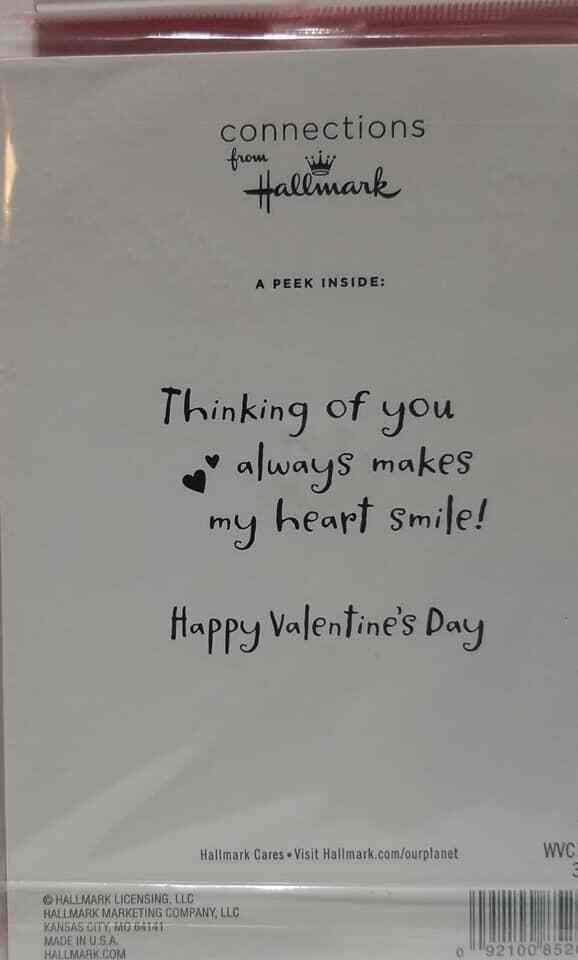 connections
from
Hallmark
A PEEK INSIDE:
Thinking of you
always makes
my heart smile!
Happy Valentine's Day
Hallmark Cares • Visit Hallmark.com/ourplanet
WVC
3
© HALLMARK LICENSING, LLC
HALLMARK MARKETING COMPANY, LLC
KANSAS CITY, MO 64141
MADE IN U.S.A.
HALLMARK.COM
0 92100 852